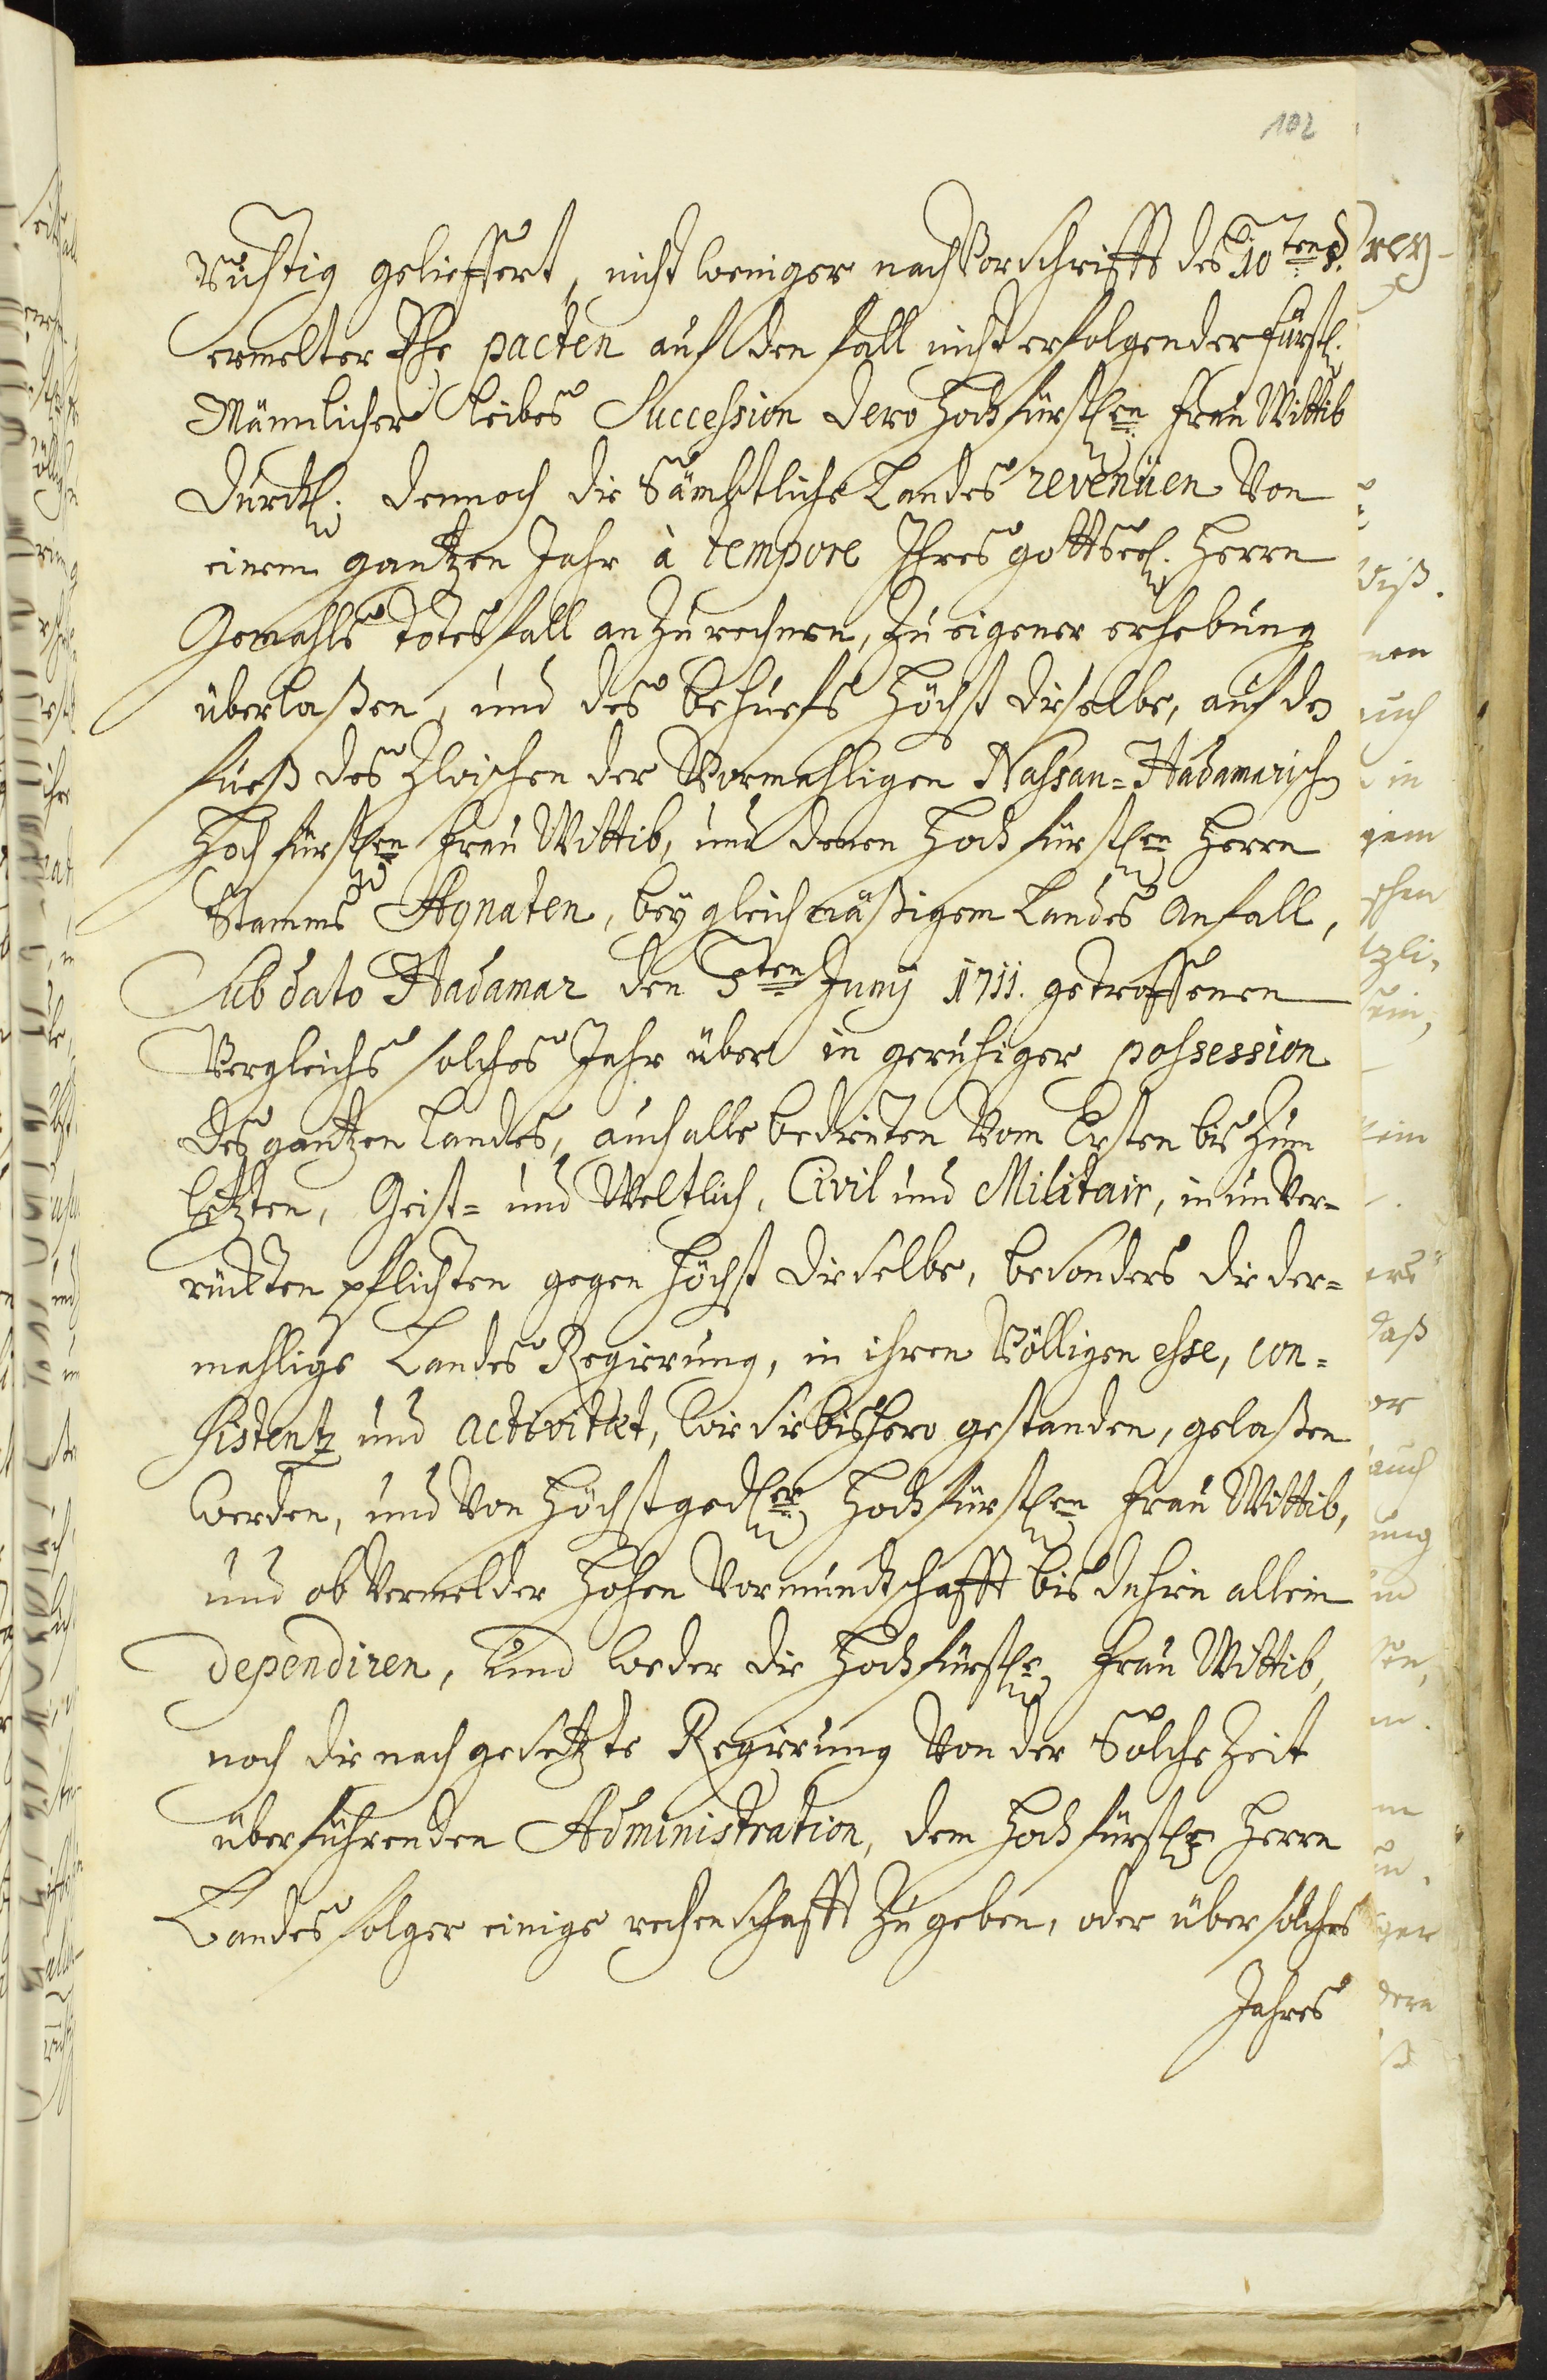 102
Richtig gelieffert, nicht weniger nach Vorschrifft des 10ten §.
ermelter Ehe pacten auf den fall nicht erfolgender fürstl.
Männlicher leibes Succession dero Hochfürstlen Frau Wittib
Durchl. dennoch die Sämbtliche Landes revenüen Von
einem gantzen Jahr à tempore Ihres gottseel. Herrn
Gemahls Totesfall anzurechnen, zu eigener erhebung
überlaßen, und des behuefs Höchst dieselbe, auf den
fueß des Zwischen der Vormahligen Nassau-Hadamarischen
Hochfürstlen Frau Wittib, und denen Hochfürstlen Herrn
Stamms Agnaten, bey gleichmäßigem Landes Anfall,
Sub dato Hadamar den 3ten Junij 1711. getroffenen
Vergleichs solches Jahr über in geruhiger possession
des gantzen Landes, auch alle bediente Vom Ersten bis Zum
letzten, Geist- und Weltlich, Civil und Militair, in unVer-
rückten pflichten gegen Höchst dieselbe, besonders die der-
mahlige Landes Regierung, in ihren Völligen esse, con-
sistentz und activitæt, wie sie bishero gestanden, gelaßen
werden, und Von Höchstgedler Hochfürstlen Frau Wittib,
und ob Vermelder Hohen Vormundtschafft bis dahin allein
dependiren, Und weder die Hochfürstle Frau Wittib,
noch die nachgesetzte Regierung Von der Solche Zeit
über führenden Administration, dem Hochfürstln Herrn
Landes folger einige rechenschafft Zu geben, oder über solches
Jahres